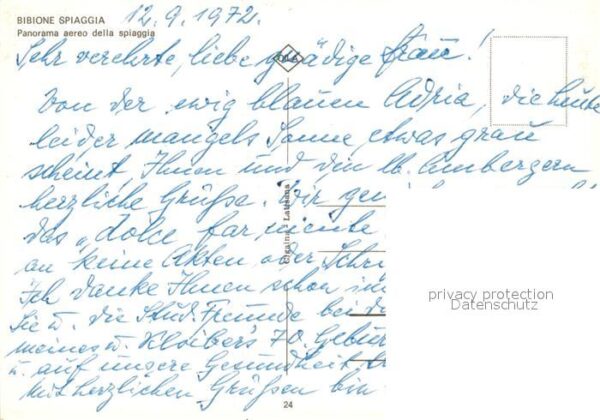 BIBIONE SPIAGGIA
Panorama aereo della spiaggia
12.9.1972.
Sehr verehrte, liebe gnädige Frau!
Von der ewig blauen Adria, die heute
leider mangels Sonne etwas grau
scheint, Ihnen und den lb. Ambergern
herzliche Grüße. Wir gen
das "dolce far niente
an keine Akten oder Schri
Ich danke Ihnen schon
Sie u. die Stud. Freunde bei d
meines u. Kloiber's 70. Gebur
u. auf unsere Gesundheit
Mit herzlichen Grüßen bin
Latisana
24
privacy protection
Datenschutz